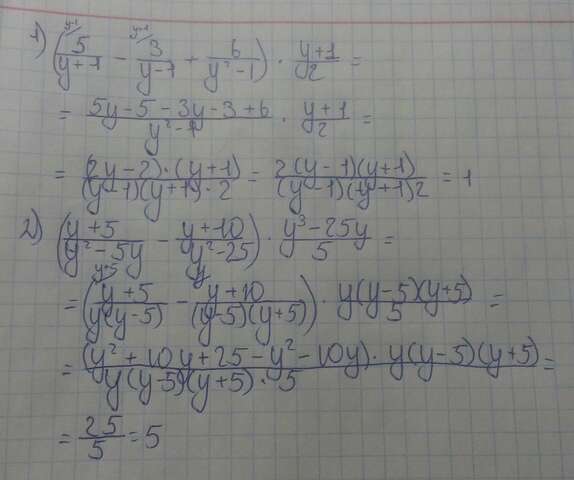 1) (5/(y+1) - 3/(y-1) + 6/(y²-1)) · (y+1)/2 =
= (5y-5-3y-3+6)/(y²-1) · (y+1)/2 =
= ((2y-2)·(y+1))/((y-1)(y+1)·2) = (2(y-1)(y+1))/((y-1)(y+1)2) = 1
2) ((y+5)/(y²-5y) - (y+10)/(y²-25)) · (y³-25y)/5 =
= ((y+5)/(y(y-5)) - (y+10)/((y-5)(y+5))) · (y(y-5)(y+5))/5 =
= ((y²+10y+25-y²-10y)·y(y-5)(y+5))/(y(y-5)(y+5)·5) =
= 25/5 = 5